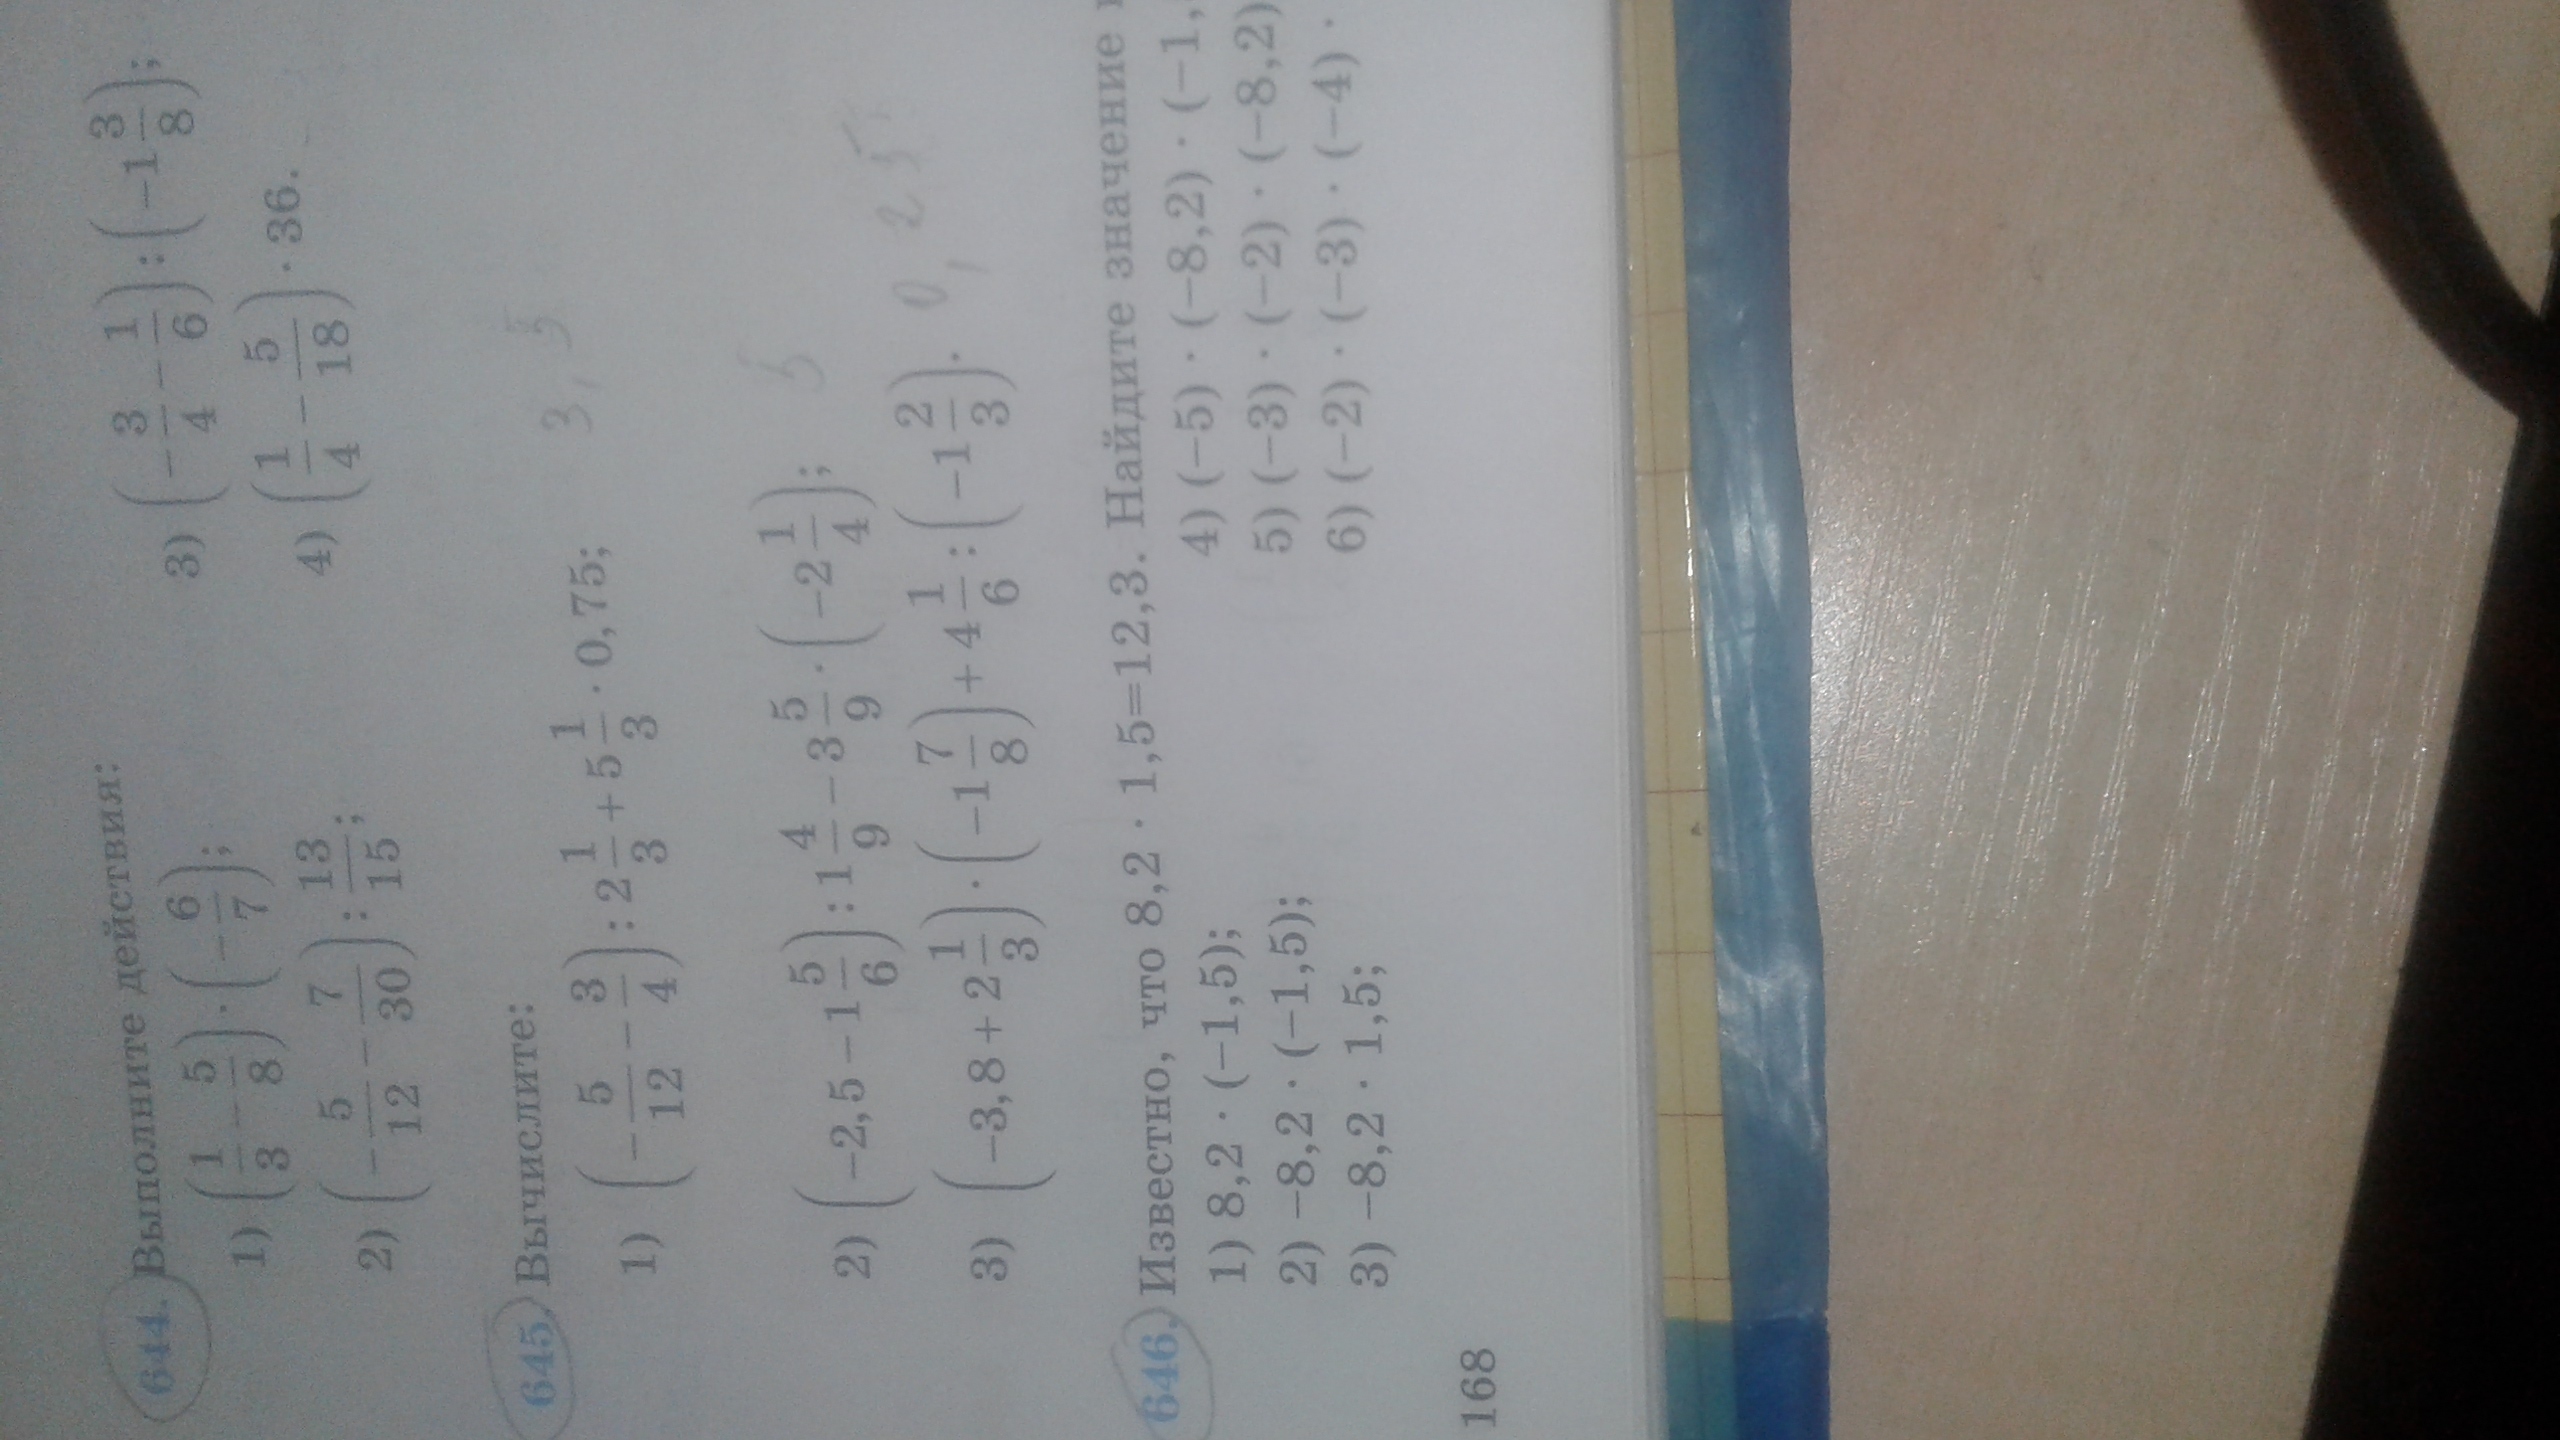 644. Выполните действия:
1) (1/3 − 5/8) · (−6/7);
3) (−3/4 − 1/6) : (−1 3/8);
2) (−5/12 − 7/30) : 13/15;
4) (1/4 − 5/18) · 36.
645. Вычислите:
3,5
1) (−5/12 − 3/4) : 2 1/3 + 5 1/3 · 0,75;
5
2) (−2,5 − 1 5/6) : 1 4/9 − 3 5/9 · (−2 1/4);
3) (−3,8 + 2 1/3) · (−1 7/8) + 4 1/6 : (−1 2/3). 0,25
646. Известно, что 8,2 · 1,5=12,3. Найдите значение
1) 8,2 · (−1,5);
4) (−5) · (−8,2) · (−1,
2) −8,2 · (−1,5);
5) (−3) · (−2) · (−8,2)
3) −8,2 · 1,5;
6) (−2) · (−3) · (−4) ·
168